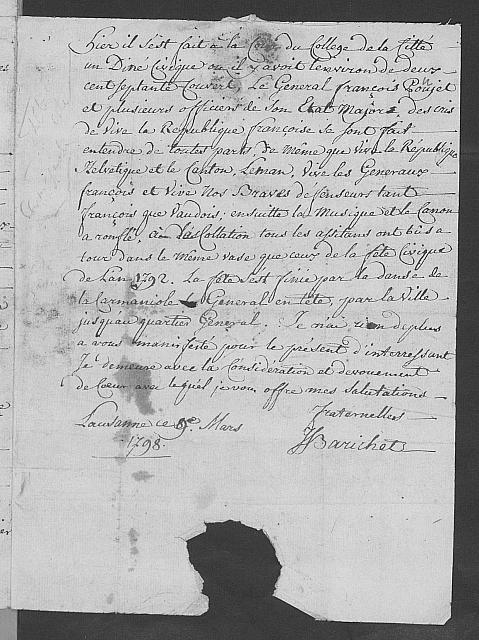 Hier il s'est fait à la Cour du College de la Citté
un Diné Civique ou il y avoit l'environ de deux
cent septante Couvert, Le General françois Poujet
et plusieurs officiers de son Etat Major. des cris
de Vive la République françoise se sont fait
entendre de toutes parts de même que Vive la République
Helvetique et le Canton Leman, Vive les Generaux
françois et Vive Nos Braves défenseurs tant
françois que Vaudois, ensuitte la Musique et le Canon
a ronflé. a la Collation tous les assitans ont bû a
tour dans le même vase que ceux de la fête Civique
de Lan 1792. La fête s'est finie par la danse de
la Carmaniole Le General en tête, par la Ville
jusqu'au quartier General. Je n'ai rien de plus
a vous manifesté pour le présent d'interressant
Je demeure avec la Considération et devouement
de Cœur avec lequel je vous offre mes Salutations
fraternelles
Lausanne ce Mars
1798.
Barichet